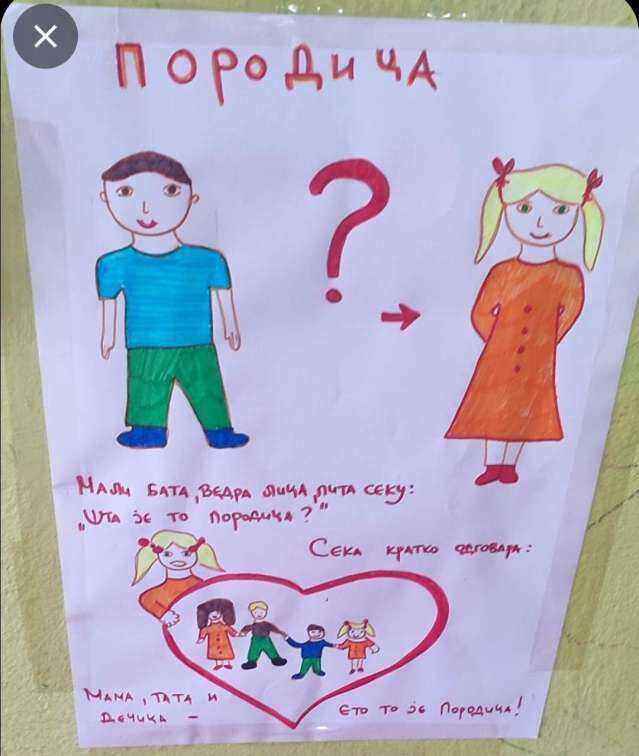 ПОРОДИЦА
?
МАЛИ БАТА, ВЕДРА ЛИЦА, ПИТА СЕКУ:
„ШТА ЈЕ ТО ПОРОДИЦА?"
СЕКА КРАТКО ОДГОВАРА:
МАМА, ТАТА И
ДЕЧИЦА -
ЕТО ТО ЈЕ ПОРОДИЦА!